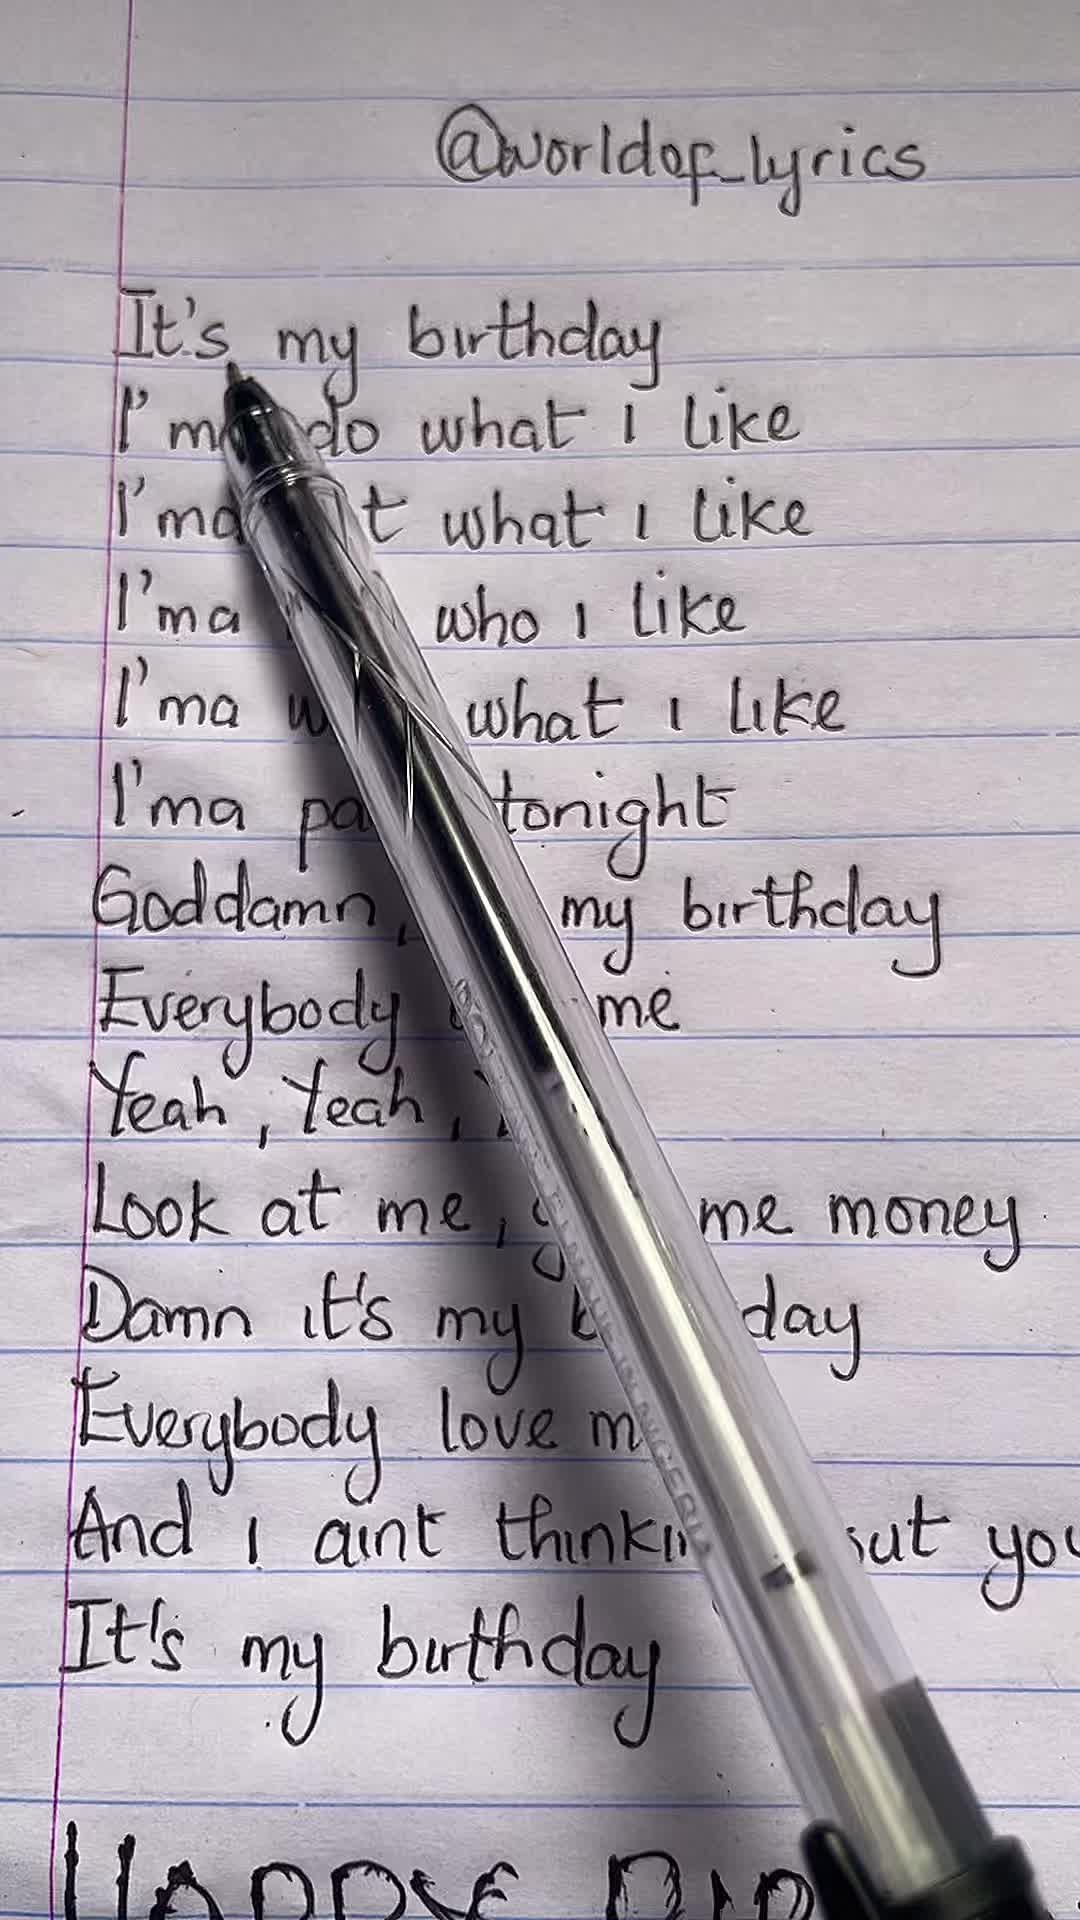 @worldof_lyrics
It's my birthday
I'ma do what I like
I'ma what I like
I'ma who I like
I'ma what I like
I'ma tonight
Goddamn, my birthday
Everybody me
Yeah, Yeah,
Look at me, me money
Damn it's my day
Everybody love
And I aint you
It's my birthday